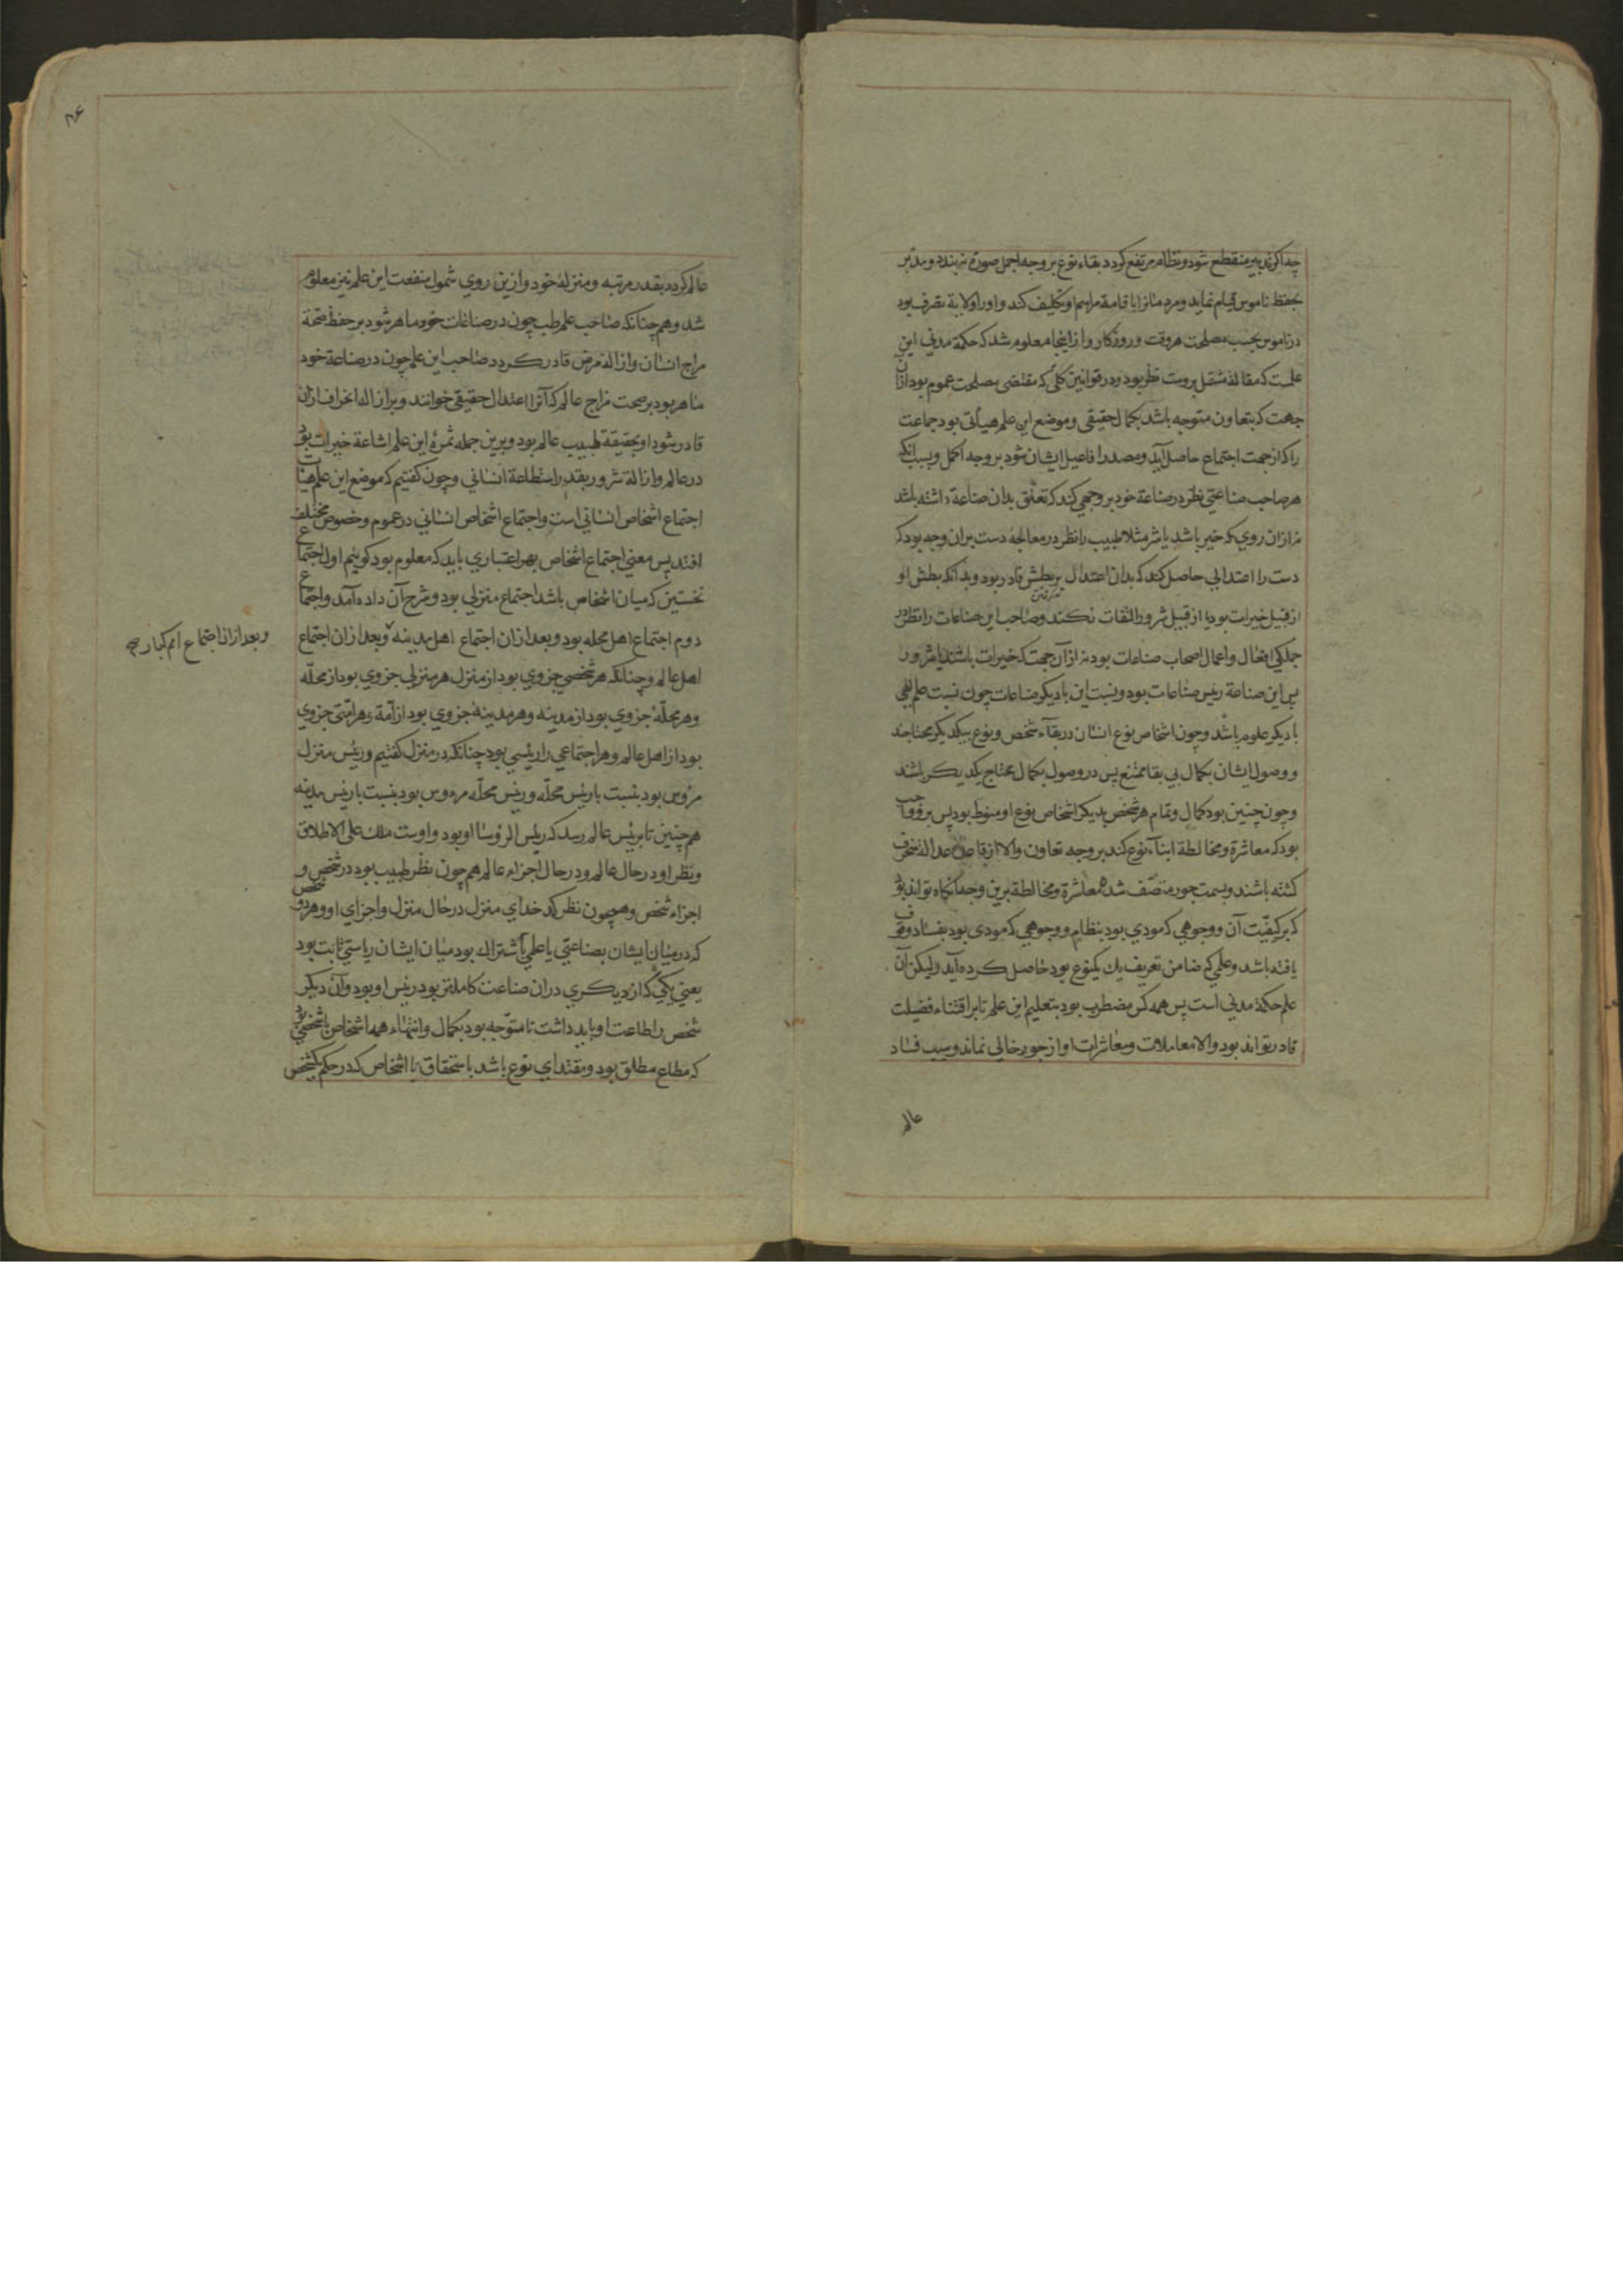 چه اگر تدبیر منقطع شود و نظام مرتفع گردد بقاء نوع بر وجه اجمل صورة نه بندد و مدبر
بحفظ ناموس قیام نماید و مردمانرا باقامة مراسم او تکلیف کند و او را ولایة تصرف بود
در ناموس بحسب مصلحت هر وقت و روزکار و از اینجا معلوم شد که حکمة مدنی این
علمست که مقالة مشتمل بروست نظر بود در قوانین کلی که مقتضی مصلحت عموم بود از آن
جهت که بتعاون متوجه باشد بکمال حقیقی و موضع این علم هیأتی بود جماعت
را که از جهت اجتماع حاصل آید و مصدر افاعیل ایشان شود بر وجه اکمل و بسبب آنکه
هر صاحب صناعتی نظر در صناعة خود بر وجهی کند که تعلق بدان صناعة داشته باشد
نه از ان روی که خیر باشد یا شر مثلا طبیب را نظر در معالجۀ دست بران وجه بود که
دست را اعتدالی حاصل کند که بدان اعتدال بر بطش قادر بود و بدآنکه بطش او
از قبیل خیرات بود یا از قبیل شرور التفات نکند و صاحب این صناعات را نظر در
جملکی افعال و اعمال اصحاب صناعات بود نه از آن جهت که خیرات باشند یا شرور
پس این صناعة رئیس صناعات بود و نسبت این با دیکر صناعات چون نسبت علم الهی
با دیکر علوم باشد و چون اشخاص نوع انسان در بقاء شخص و نوع بیکدیکر محتاجند
و وصول ایشان بکمال بی بقا ممتنع پس در وصول بکمال محتاج یکدیکر باشند
و چون چنین بود کمال و تمام هر شخص بدیکر اشخاص نوع او منوط بود پس برو واجب
بود که معاشرة و مخالطة ابناء نوع کند بر وجه تعاون والا از قاعدۀ عدالة منحرف
کشته باشند و بسمت جور متصف شده معاشرة و مخالطة برین وجه آنکاه تواند بود
که بر کیفیّت آن و وجوهی که مودی بود بنظام و وجوهی که مودی بود بفساد وقوف
یافته باشد و علمی که ضامن تعریف یك یکنوع بود حاصل کرده آید ولیکن آن
علم حکمة مدنی است پس همه کس مضطرب بود بتعلیم این علم تا بر اقتناء فضیلت
قادر تواند بود والا معاملات و معاشرات او از جور خالی نماند و سبب فساد
عالم
۸۶
عالم کردد بقدر مرتبه و منزلۀ خود و ازین روی شمول منفعت این علم نیز معلوم
شد و هم چنانکه صاحب علم طب چون در صناعات خود ماهر شود بر حفظ صحة
مزاج انسان و ازالة مرض قادر کردد صاحب این علم چون در صناعة خود
ماهر بود بر صحت مزاج عالم که آنرا اعتدال حقیقی خوانند و بر ازالۀ انحراف ازان
قادر شود او بحقیقة طبیب عالم بود و برین جمله ثمرۀ این علم اشاعة خیرات بود
در عالم و ازالة شرور بقدر استطاعة انسانی و چون کفتیم که موضع این علم هیأت
اجتماع اشخاص انسانی است و اجتماع اشخاص انسانی در عموم و خصوص مختلف
افتد پس معنی اجتماع اشخاص بهر اعتباری باید که معلوم بود کوئیم اول اجتماع
نخستین که میان اشخاص باشد اجتماع منزلی بود و شرح آن داده آمد و اجتماع
دوم اجتماع اهل محله بود و بعد ازان اجتماع اهل مدینه و بعد ازان اجتماع
و بعد ازان اجتماع امم کبار صح
اهل عالم و چنانکه هر شخصی جزوی بود از منزل هر منزلی جزوی بود از محلّه
و هر محلّۀ جزوی بود از مدینه و هر مدینۀ جزوی بود از أمة و هر امّتی جزوی
بود از اهل عالم و هر اجتماعی را رئیسی بود چنانکه در منزل کفتیم و رئیس منزل
مرؤس بود بنسبت با رئیس محلّه و رئیس محلّه مرءوس بود بنسبت با رئیس مدینه
هم چنین تا برئیس عالم رسد که رئیس الرؤسا او بود و اوست ملك علی الاطلاق
و نظر او در حال عالم و در حال اجزاء عالم هم چون نظر طبیب بود در شخص و
اجزاء شخص و همچون نظر کدخدای منزل در حال منزل و اجزای او و هر دو شخص
که در میان ایشان بصناعتی یا علمی اشتراك بود میان ایشان ریاستی ثابت بود
یعنی یکی که از دیکری دران صناعت کاملتر بود رئیس او بود و آن دیکر
شخص را طاعت او باید داشت تا متوّجه بود بکمال و انتهاء همه اشخاص با شخصی بود
که مطاع مطلق بود و مقتدای نوع باشد باستحقاق یا اشخاص که در حکم یکشخص